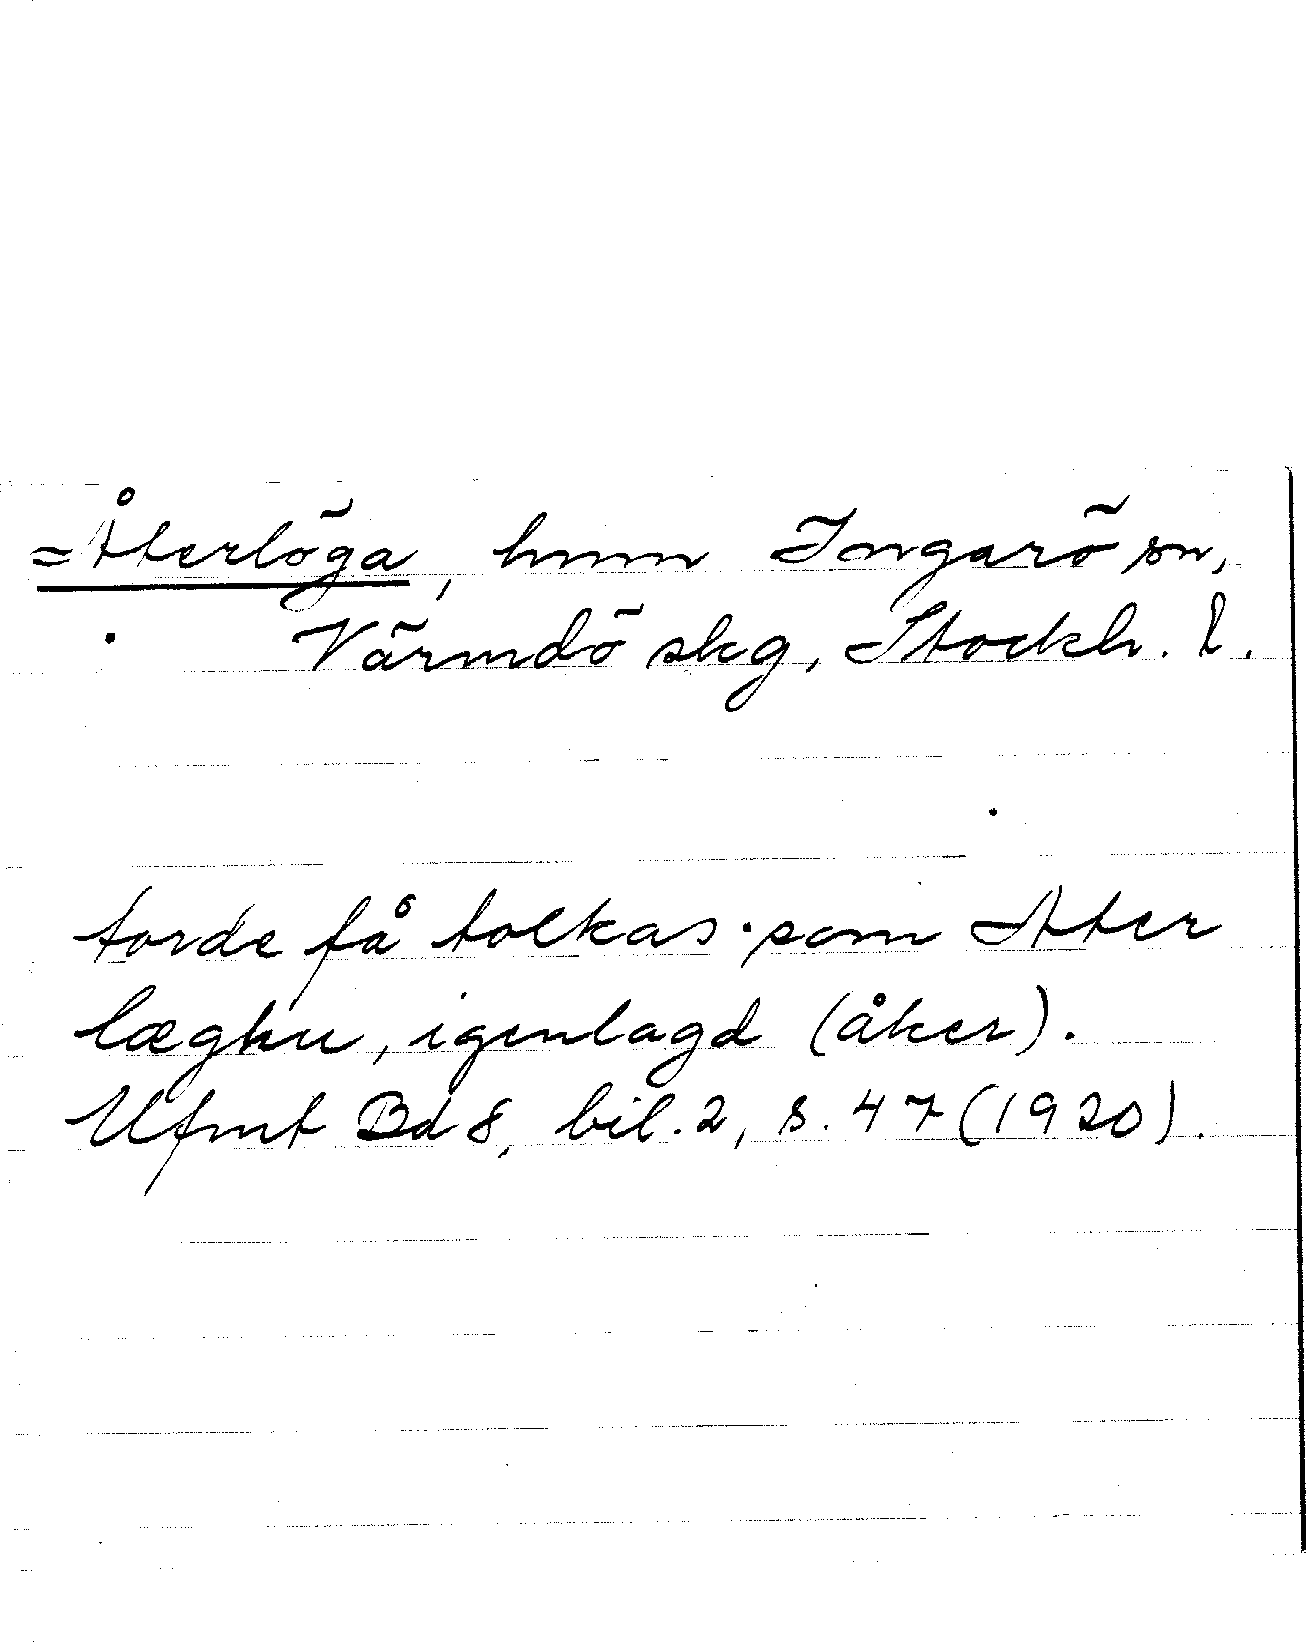 =Återlöga, hmn Ingarö sn,
Värmdö skg, Stockh. l.
torde få tolkas som Ater
læghu, igenlagd (åker).
Ufmt Bd 8, bil. 2, s. 47 (1920).